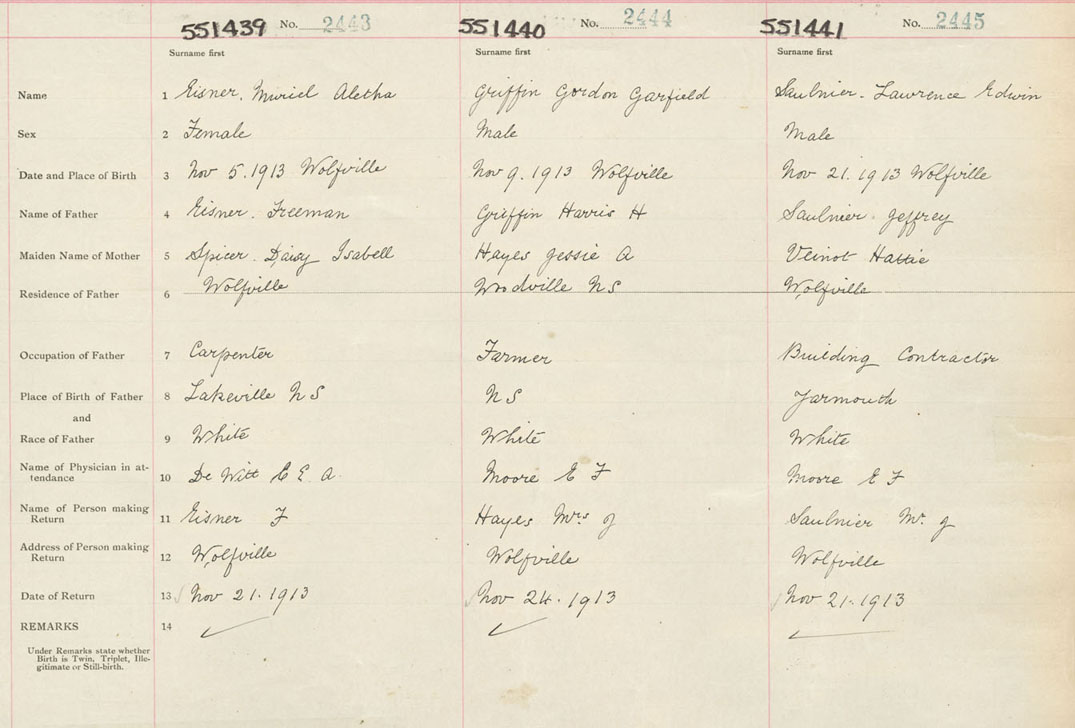 551439 No. 2443 551440 No. 2444 551441 No. 2445
Surname first Surname first Surname first
Name 1 Eisner. Muriel Aletha Griffin Gordon Garfield Saulnier. Lawrence Edwin
Sex 2 Female Male Male
Date and Place of Birth 3 Nov 5. 1913 Wolfville Nov 9. 1913 Wolfville Nov 21. 1913 Wolfville
Name of Father 4 Eisner. Freeman Griffin Harris H Saulnier. Jeffrey
Maiden Name of Mother 5 Spicer. Daisy Isabell Hayes Jessie A Veinot Hattie
Residence of Father 6 Wolfville Woodville NS Wolfville
Occupation of Father 7 Carpenter Farmer Building Contractor
Place of Birth of Father 8 Lakeville NS NS Yarmouth
and
Race of Father 9 White White White
Name of Physician in at-
tendance 10 De Witt C E A. Moore E F Moore E F
Name of Person making
Return 11 Eisner F Hayes Mrs J Saulnier Mr. J
Address of Person making
Return 12 Wolfville Wolfville Wolfville
Date of Return 13 Nov 21. 1913 Nov 24. 1913 Nov 21. 1913
REMARKS 14
Under Remarks state whether
Birth is Twin, Triplet, Ille-
gitimate or Still-birth.